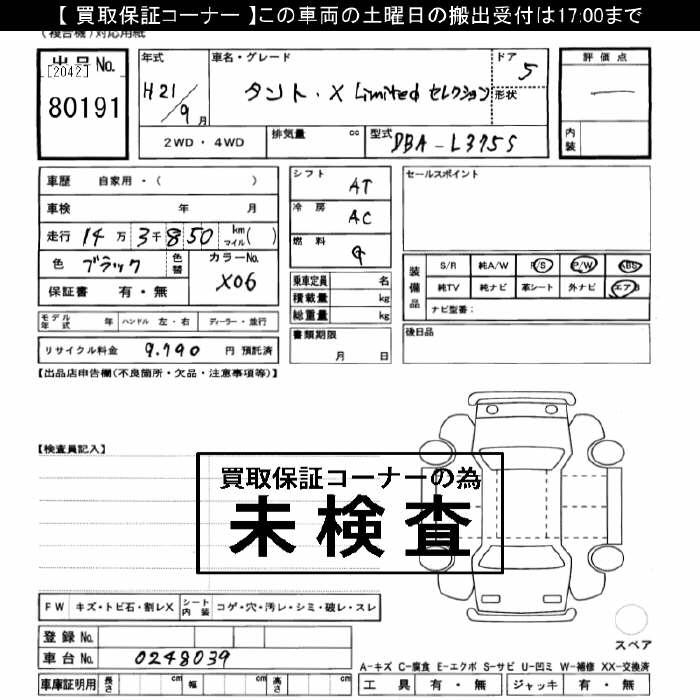 【 買取保証コーナー 】この車両の土曜日の搬出受付は17:00まで
(複合機)対応用紙
出品No. [2042] 80191
年式 H21/9月
車名・グレード タント・X Limited セレクション
ドア 5
形状
2WD・4WD
排気量 cc
型式 DBA-L375S
評価点 —
内装
車歴 自家用・( )
車検 年 月
走行 14万3千850 km マイル( )
色 ブラック 色替
カラーNo. X06
保証書 有・無
シフト AT
冷房 AC
燃料 G
乗車定員 名
積載量 kg
総重量 kg
書類期限 月 日
セールスポイント
装備品
S/R 純A/W P/S P/W ABS
純TV 純ナビ 革シート 外ナビ エアB
ナビ型番:
後日品
モデル年式 年 ハンドル 左・右 ディーラー・並行
リサイクル料金 9.790 円 預託済
【出品店申告欄(不良箇所・欠品・注意事項等)】
【検査員記入】
買取保証コーナーの為
未検査
FW キズ・トビ石・割レX シート内装 コゲ・穴・汚レ・シミ・破レ・スレ
登録No.
車台No. 0248039
車庫証明用 長さ cm 幅 cm 高さ cm
スペア
A-キズ C-腐食 E-エクボ S-サビ U-凹ミ W-補修 XX-交換済
工具 有・無 ジャッキ 有・無